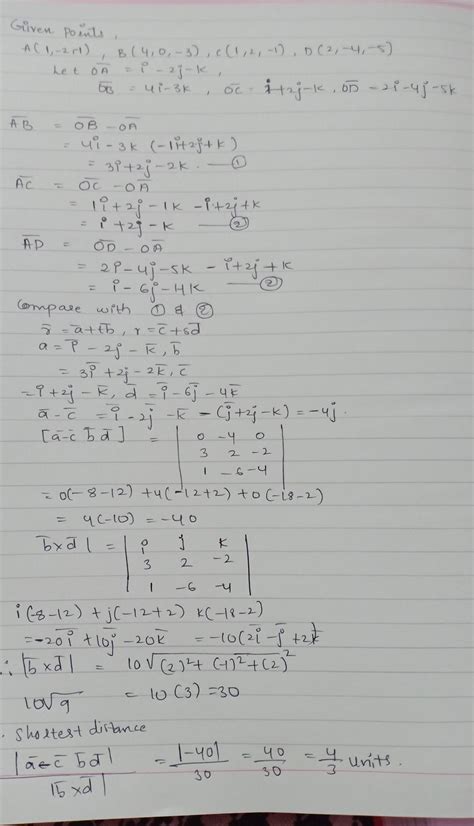 Given points,
A(1,-2,-1), B(4,0,-3), C(1,2,-1), D(2,-4,-5)
Let OA = i - 2j - k,
OB = 4i - 3k, OC - i + 2j - k. OD - 2i - 4j - 5k
AB = OB - OA
= 4i - 3k (-1i + 2j + k)
= 3i + 2j - 2k. — ①
AC = OC - OA
= 1i + 2j - 1k - i + 2j + k
= i + 2j - k — ②
AD = OD - OA
= 2i - 4j - 5k - i + 2j + k
= i - 6j - 4k — ②
Compare with ① & ②
r̄ = ā + tb̄, r = c̄ + sd̄
a = i - 2j - k̄, b̄
= 3i + 2j - 2k̄, c̄
= i + 2j - k̄, d̄ = i - 6j - 4k̄
ā - c̄ = i - 2j - k̄ - (j + 2j - k) = -4j.
[ā-c̄ b̄ d̄] = | 0 -4 0 |
| 3 2 -2 |
| 1 -6 -4 |
= 0(-8-12) + 4(-12+2) + 0(-18-2)
= 4(-10) = -40
b̄×d̄| = | i j k |
| 3 2 -2 |
| 1 -6 -4 |
i(-8-12) + j(-12+2) k(-18-2)
= -20i + 10j - 20k̄ = -10(2i - j + 2k)
∴ |b̄×d̄| = 10√(2)²+(-1)²+(2)²
10√9 = 10(3) = 30
. Shortest distance
|ā-c̄ b̄ d̄| / |b̄×d̄| = |-40| / 30 = 40/30 = 4/3 units.